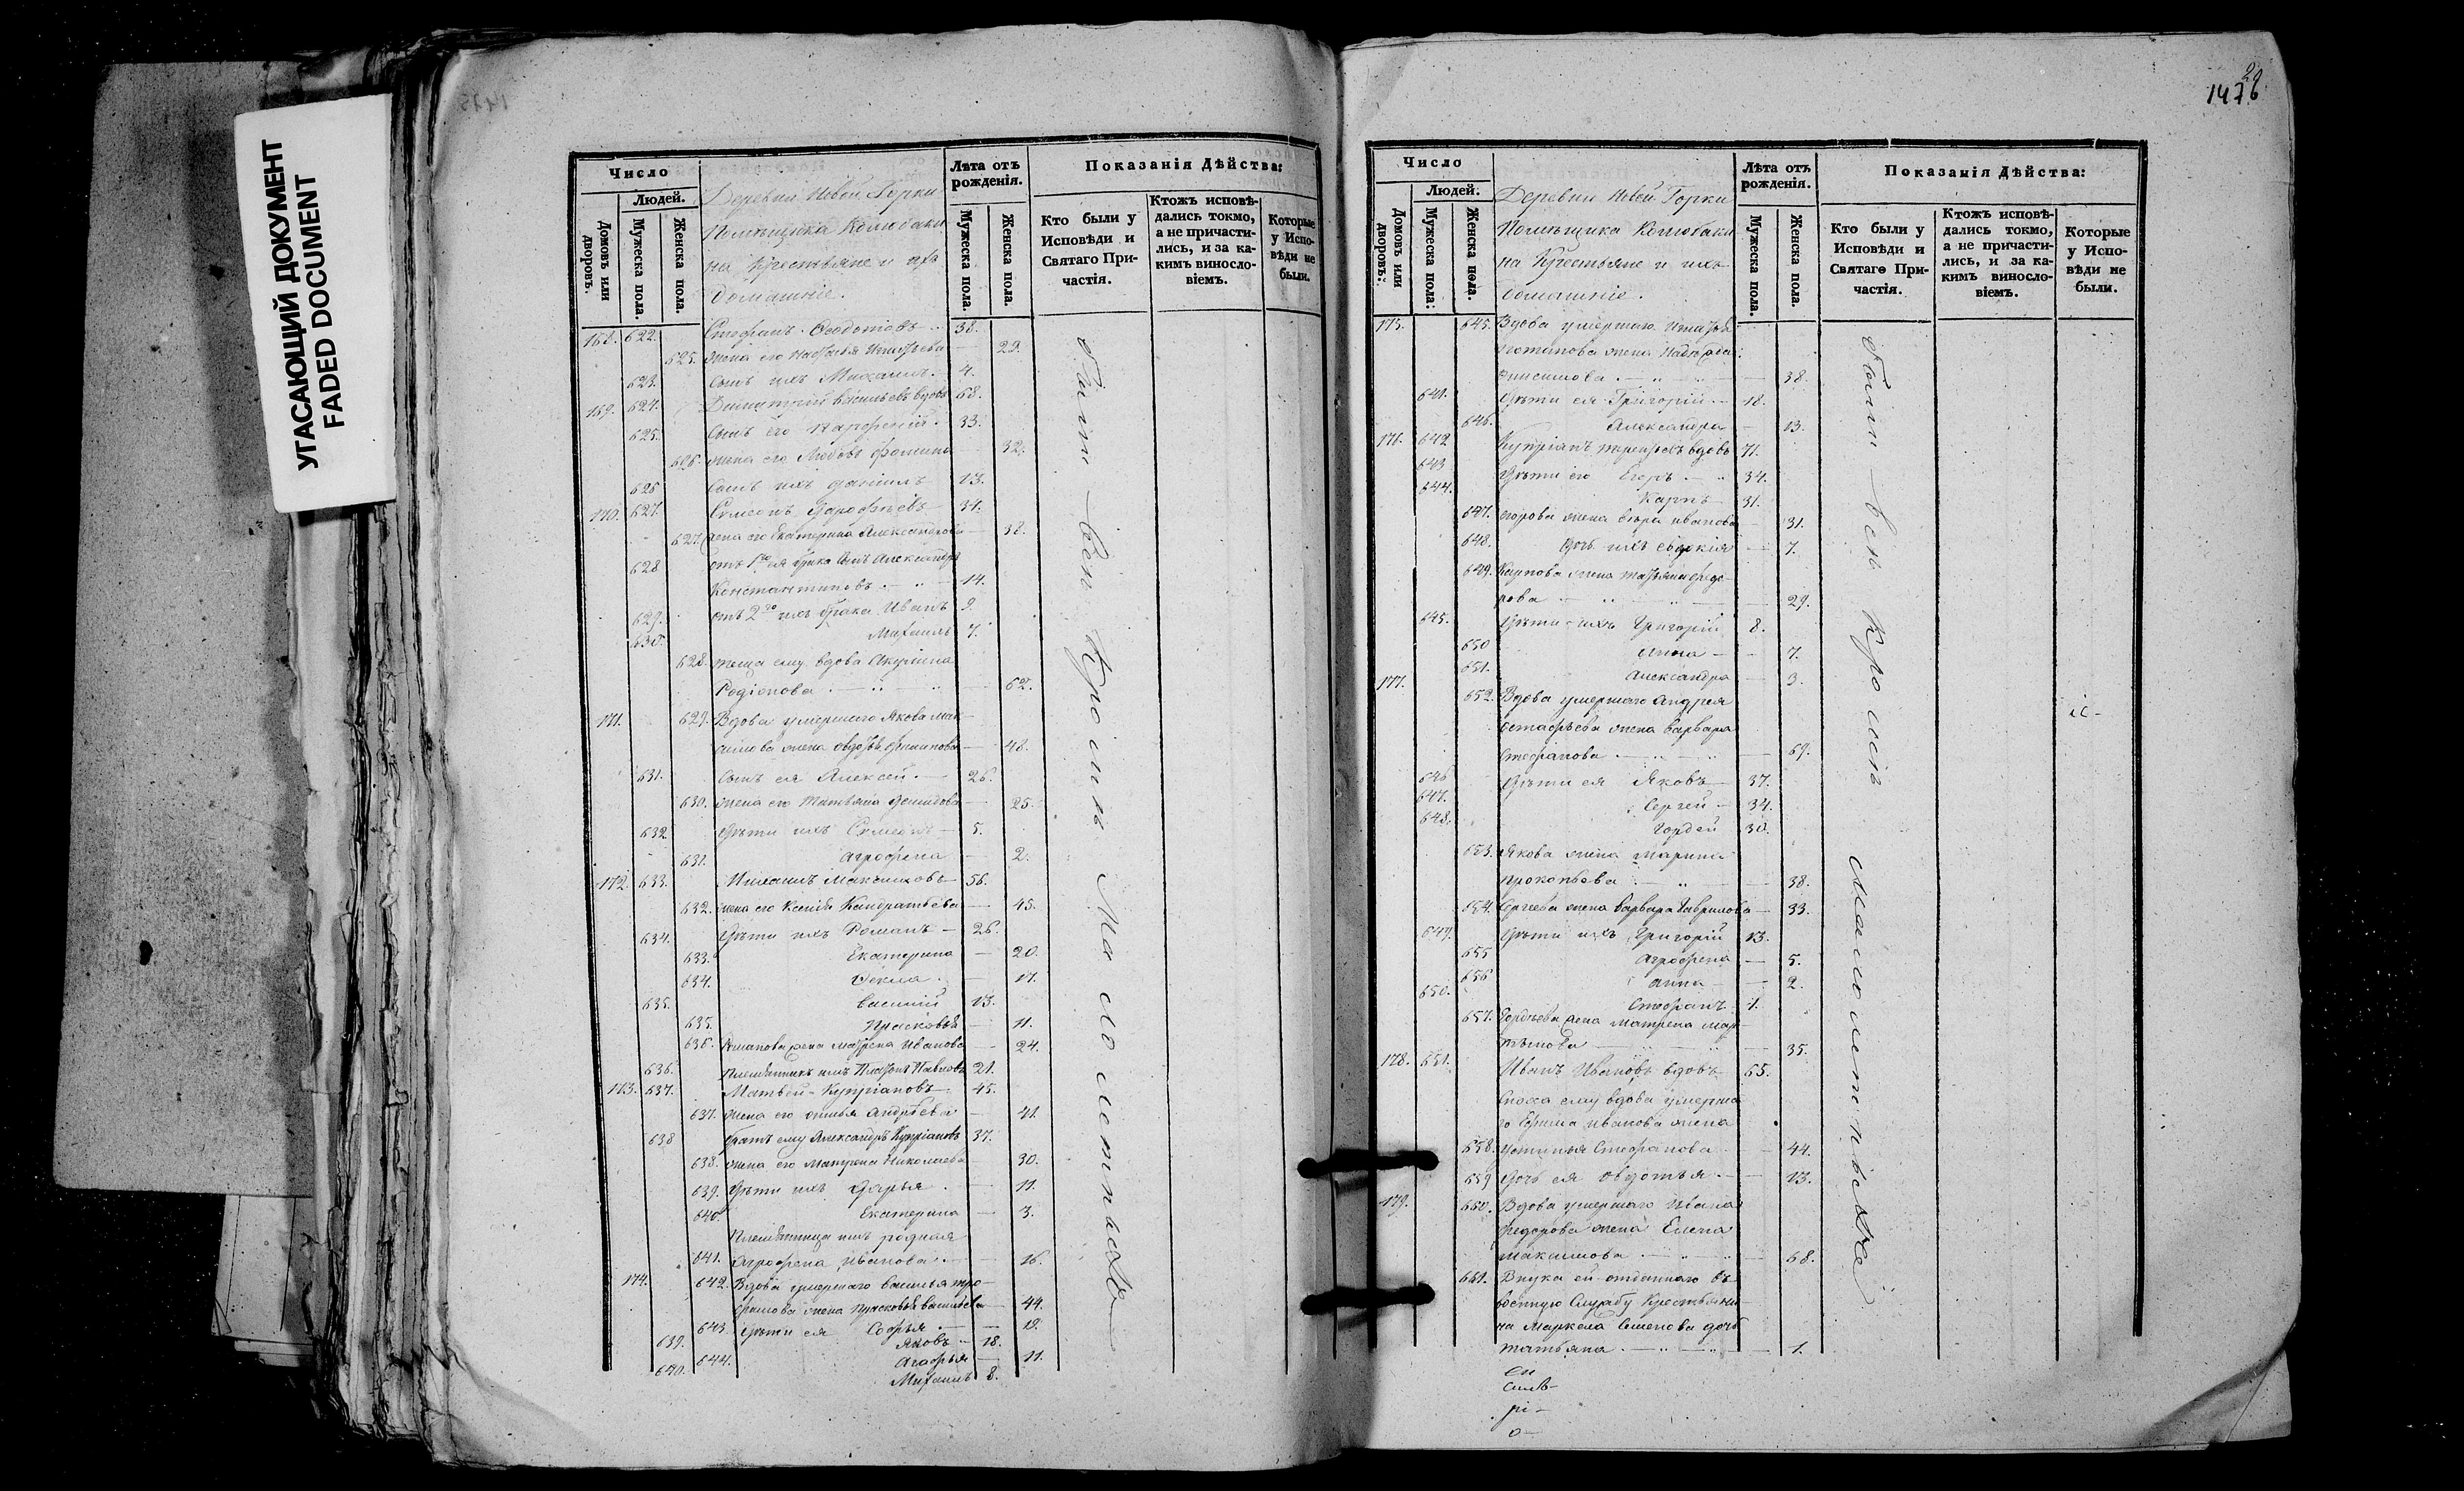 УГАСАЮЩИЙ ДОКУМЕНТ
FADED DOCUMENT
Число
Людей.
Домовъ или дворовъ.
Мужеска пола.
Женска пола.
Деревни Новой Горки
Помѣщика Колюбаки
на Крестьяне и ихъ
домашніе.
Лѣта отъ рожденія.
Мужеска пола.
Женска пола.
Показанія Дѣйства:
Кто были у Исповѣди и Святаго Причастія.
Ктожъ исповѣдались токмо, а не причастились, и за какимъ винословіемъ.
Которые у Исповѣди не были.
168. 622. Стефанъ Ѳеодотовъ 38.
625. жена его Наталья 29.
623. сынъ ихъ Михаилъ 4.
169. 624. Димитрій Васильевъ вдовъ 68.
625. сынъ его Парфеній 33.
626. жена его Любовь Фомина 32.
626 сынъ ихъ Даніилъ 13.
170. 627. Симеонъ Дорофѣевъ 34.
627. жена его Екатерина Александрова 38.
628 отъ 1го ея брака сынъ Александръ
Константиновъ 14.
629. отъ 2го ихъ брака Иванъ 9.
630. Михаилъ 7.
628. теща ему вдова Акулина
Родіонова 62.
171. 629. Вдова умершаго Якова Мак
симова жена Авдотья Филипова 48.
631. сынъ ея Алексѣй 26.
630. жена его Татьяна Демидова 25.
632 дѣти ихъ Симеонъ 5.
631. Агрофена 2.
172. 633. Михаилъ Максимовъ 56.
632. жена его Ксенія Кондратьева 45.
634. дѣти ихъ Романъ 26.
633. Екатерина 20.
634. Ѳекла 17.
635. Василій 13.
635. Прасковья 11.
636. Романова жена Матрена Иванова 24.
636. Племянникъ имъ Платонъ Павловъ 21.
173. 637. Матвей Купріановъ 45.
637. жена его Андрѣева 41.
638 братъ ему Александръ Купріановъ 37.
638. жена его Матрена Николаева 30.
639. дѣти ихъ Дарья 11.
640. Екатерина 3.
Племянница имъ родная
641. Агрофена Иванова 16.
174. 642. Вдова умершаго Василья Тро
фимова жена Прасковья Васильева 44.
643. дѣти ея Софья 19.
639. Яковъ 18.
644. Агафья 11.
640. Михаилъ 8.
были всѣ кромѣ малолетныхъ
1476
Число
Людей.
Домовъ или дворовъ:
Мужеска пола:
Женска пола.
Деревни Новой Горки
Помѣщика Колюбаки
на Крестьяне и ихъ
домашніе.
Лѣта отъ рожденія.
Мужеска пола.
Женска пола.
Показанія Дѣйства:
Кто были у Исповѣди и Святаго Причастія.
Ктожъ исповѣдались токмо, а не причастились, и за какимъ винословіемъ.
Которые у Исповѣди не были.
175. 645. Вдова умершаго Игнатья
Потапова жена Надежда
Онисимова 38.
641. дѣти ея Григорій 18.
646. Александра 13.
176. 642 Купріанъ вдовъ 71.
643 дѣти его Егоръ 34.
644. Карпъ 31.
647. Егорова жена Иванова 31.
648. дочь ихъ Евдокія 7.
649. Карпова жена Татьяна Ѳедо
рова 29.
645. дѣти ихъ Григорій 8.
650 Анна 7.
651. Александра 3.
177. 652. Вдова умершаго Андрея
Остафьева жена Варвара
Стефанова 69.
646 дѣти ея Яковъ 37.
647. Сергей 34.
648. Гордей 30.
653. Якова жена Марина
Прокопьева 38.
654. Сергеева жена Варвара Гаврилова 33.
649. дѣти ихъ Григорій 13.
655 Агрофена 5.
656 Анна 2.
650. Стефанъ 1.
657. Гордѣева жена Матрена Мар
тынова 35.
178. 651. Иванъ Ивановъ вдовъ 65.
Сноха ему вдова умерша
го Ефима Иванова жена
658. Устинья Стефанова 44.
659 дочь ея Авдотья 13.
179. 660. Вдова умершаго Ивана
Федорова жена Елена
Максимова 68.
661. Внука ей отданнаго въ
военную Службу Крестьяни
на Маркела Семенова дочь
Татьяна 1.
были всѣ кромѣ малолетныхъ